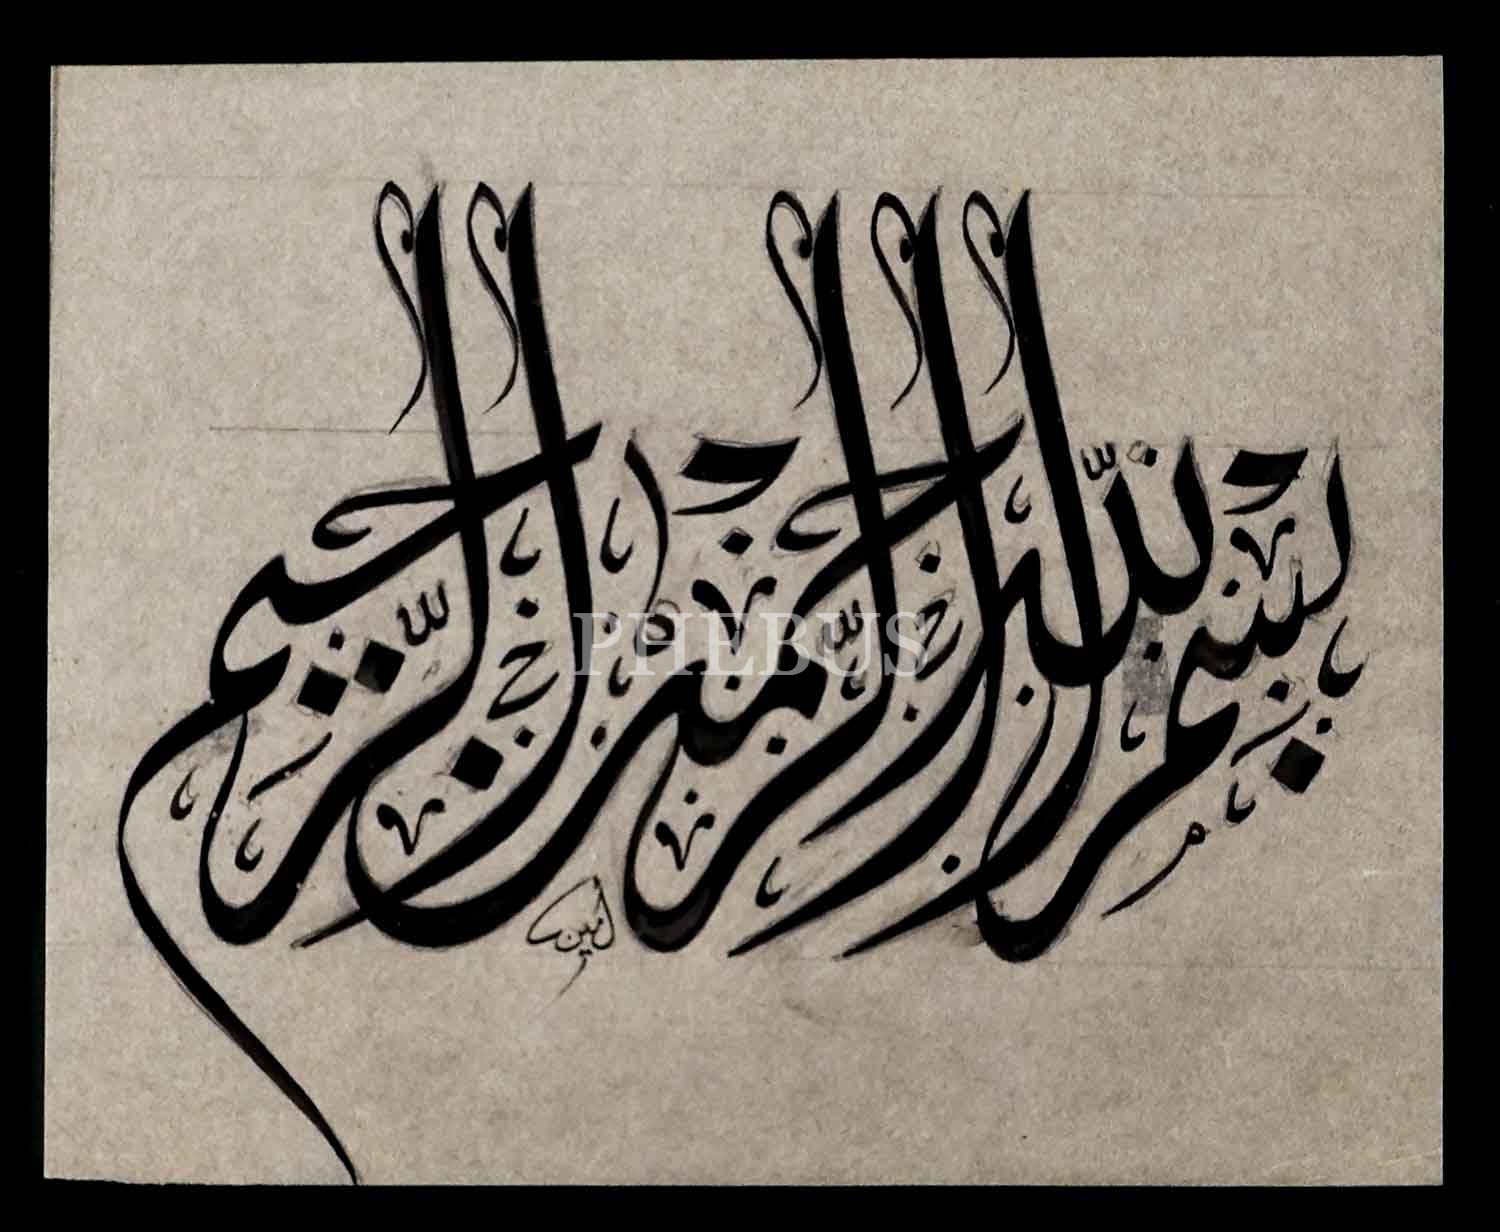 بسم الله الرحمن الرحيم
امين
PHEBUS